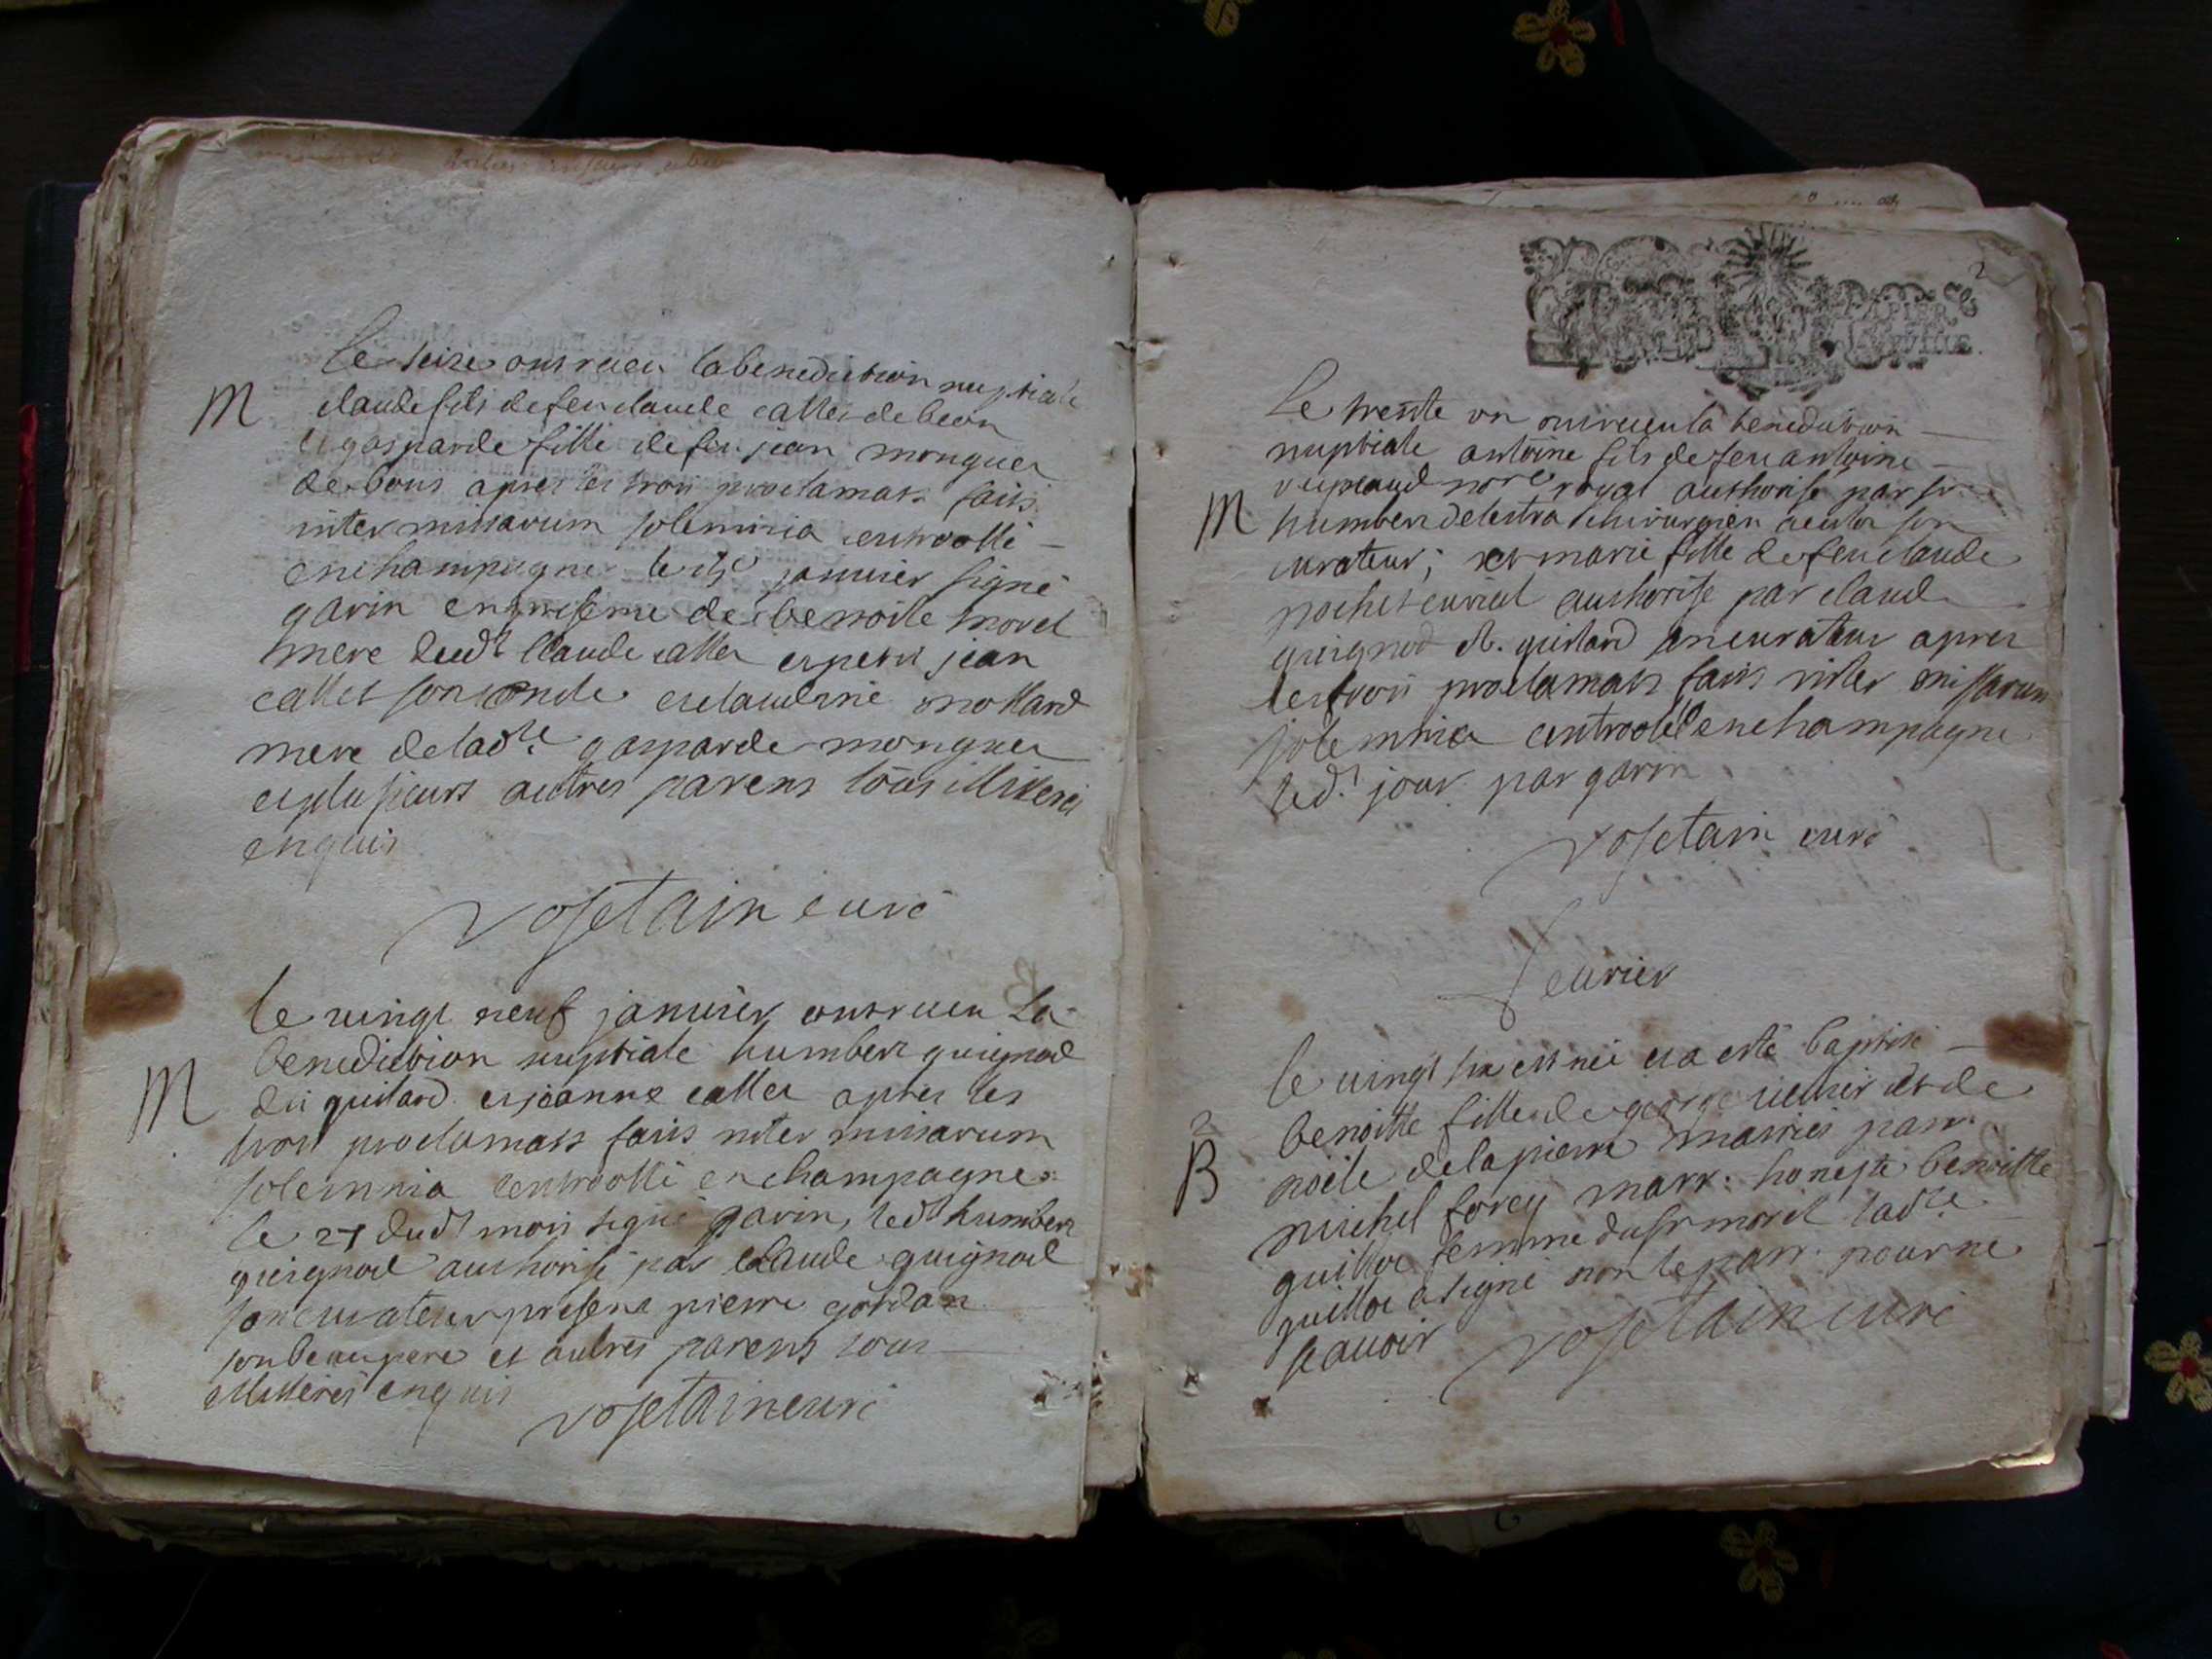 Le seize ont receu la benediction nuptiale
M
claude fils de feu claude callet de beon
et gasparde fille de feu jean monguet
de bons apres les trois proclamats faits
inter missarum solemnia controolle
en champagne le janvier signé
garin en presence de benoite morel
mere dudt Claude callet et jean
callet son oncle et claudine mollard
mere de ladte gasparde monguet
et plusieurs autres parens tous illiteres
enquis
vosetain curé
le vingt neuf januier ont receu La
benediction nuptiale humbert guignod
M
dit guitard et jeanne callet apres les
trois proclamats faits inter missarum
solemnia controolle en champagne
le 27 dudt mois signé garin, ledt humbert
guignod authorisé par Claude guignod
son curateur present pierre gordan
son beau pere et autres parens tous
illiteres enquis
vosetain curé
2
PAPIER
Le trente un ont receu la benediction
nuptiale antoine fils de feu antoine
nore royal authorisé par sr
M
humbert delestra chirurgien son
curateur; et marie fille de feu claude
pochet curial authorise par claud
guignod dt. guitard son curateur apres
les trois proclamats faits inter missarum
solemnia controollé en champagne
led.t jour par garin
vosetain curé
feurier
le vingt six est née et a esté baptisé
benoitte fille de george et de
2
B
noele delapierre mariés parr.
michel forey marr. honeste benoitte
guilloz femme du sr morel ladte
guilloz a signé non le parr. pour ne
scauoir
vosetain curé